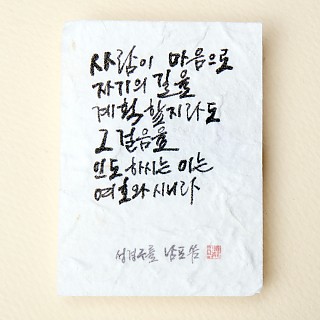 사람이 마음으로
자기의 길을
계획할지라도
그 걸음을
인도 하시는 이는
여호와시니라